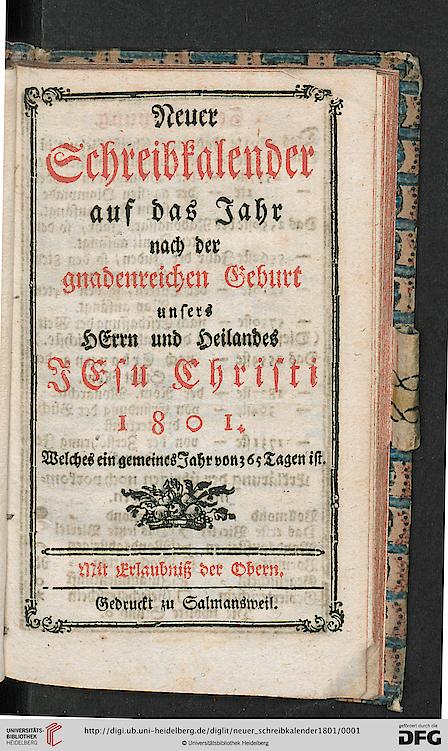 Neuer
Schreibkalender
auf das Jahr
nach der
gnadenreichen Geburt
unsers
HErrn und Heilandes
JEsu Christi
1801.
Welches ein gemeines Jahr von 365 Tagen ist.
Mit Erlaubniß der Obern.
Gedruckt zu Salmansweil.
88
UNIVERSITÄTS-
BIBLIOTHEK
HEIDELBERG
http://digi.ub.uni-heidelberg.de/diglit/neuer_schreibkalender1801/0001
© Universitätsbibliothek Heidelberg
gefördert durch die
DFG